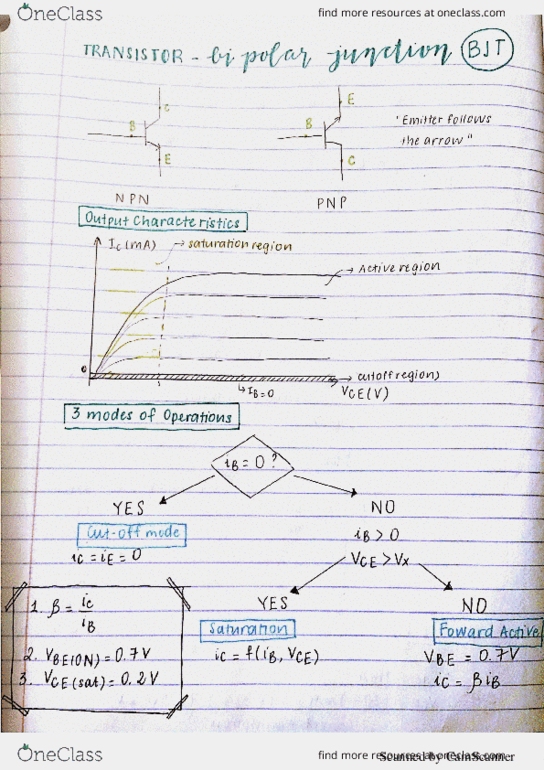 OneClass
find more resources at oneclass.com
TRANSISTOR - bi polar junction BJT
C
B
E
E
B
C
"Emitter follows
the arrow"
NPN
PNP
Output Characteristics
IC (mA)
→ saturation region
→ Active region
0
→ cutoff region)
↳ IB=0
VCE(V)
3 modes of Operations
iB = 0 ?
YES
NO
Cut-off mode
iB > 0
iC = iE = 0
VCE > Vx
1. β = iC
iB
YES
NO
Saturation
Foward Active
2. VBE(ON) = 0.7V
iC = f(iB, VCE)
VBE = 0.7V
3. VCE(sat) = 0.2V
iC = βiB
OneClass
find more resources at oneclass.com
Scanned by CamScanner